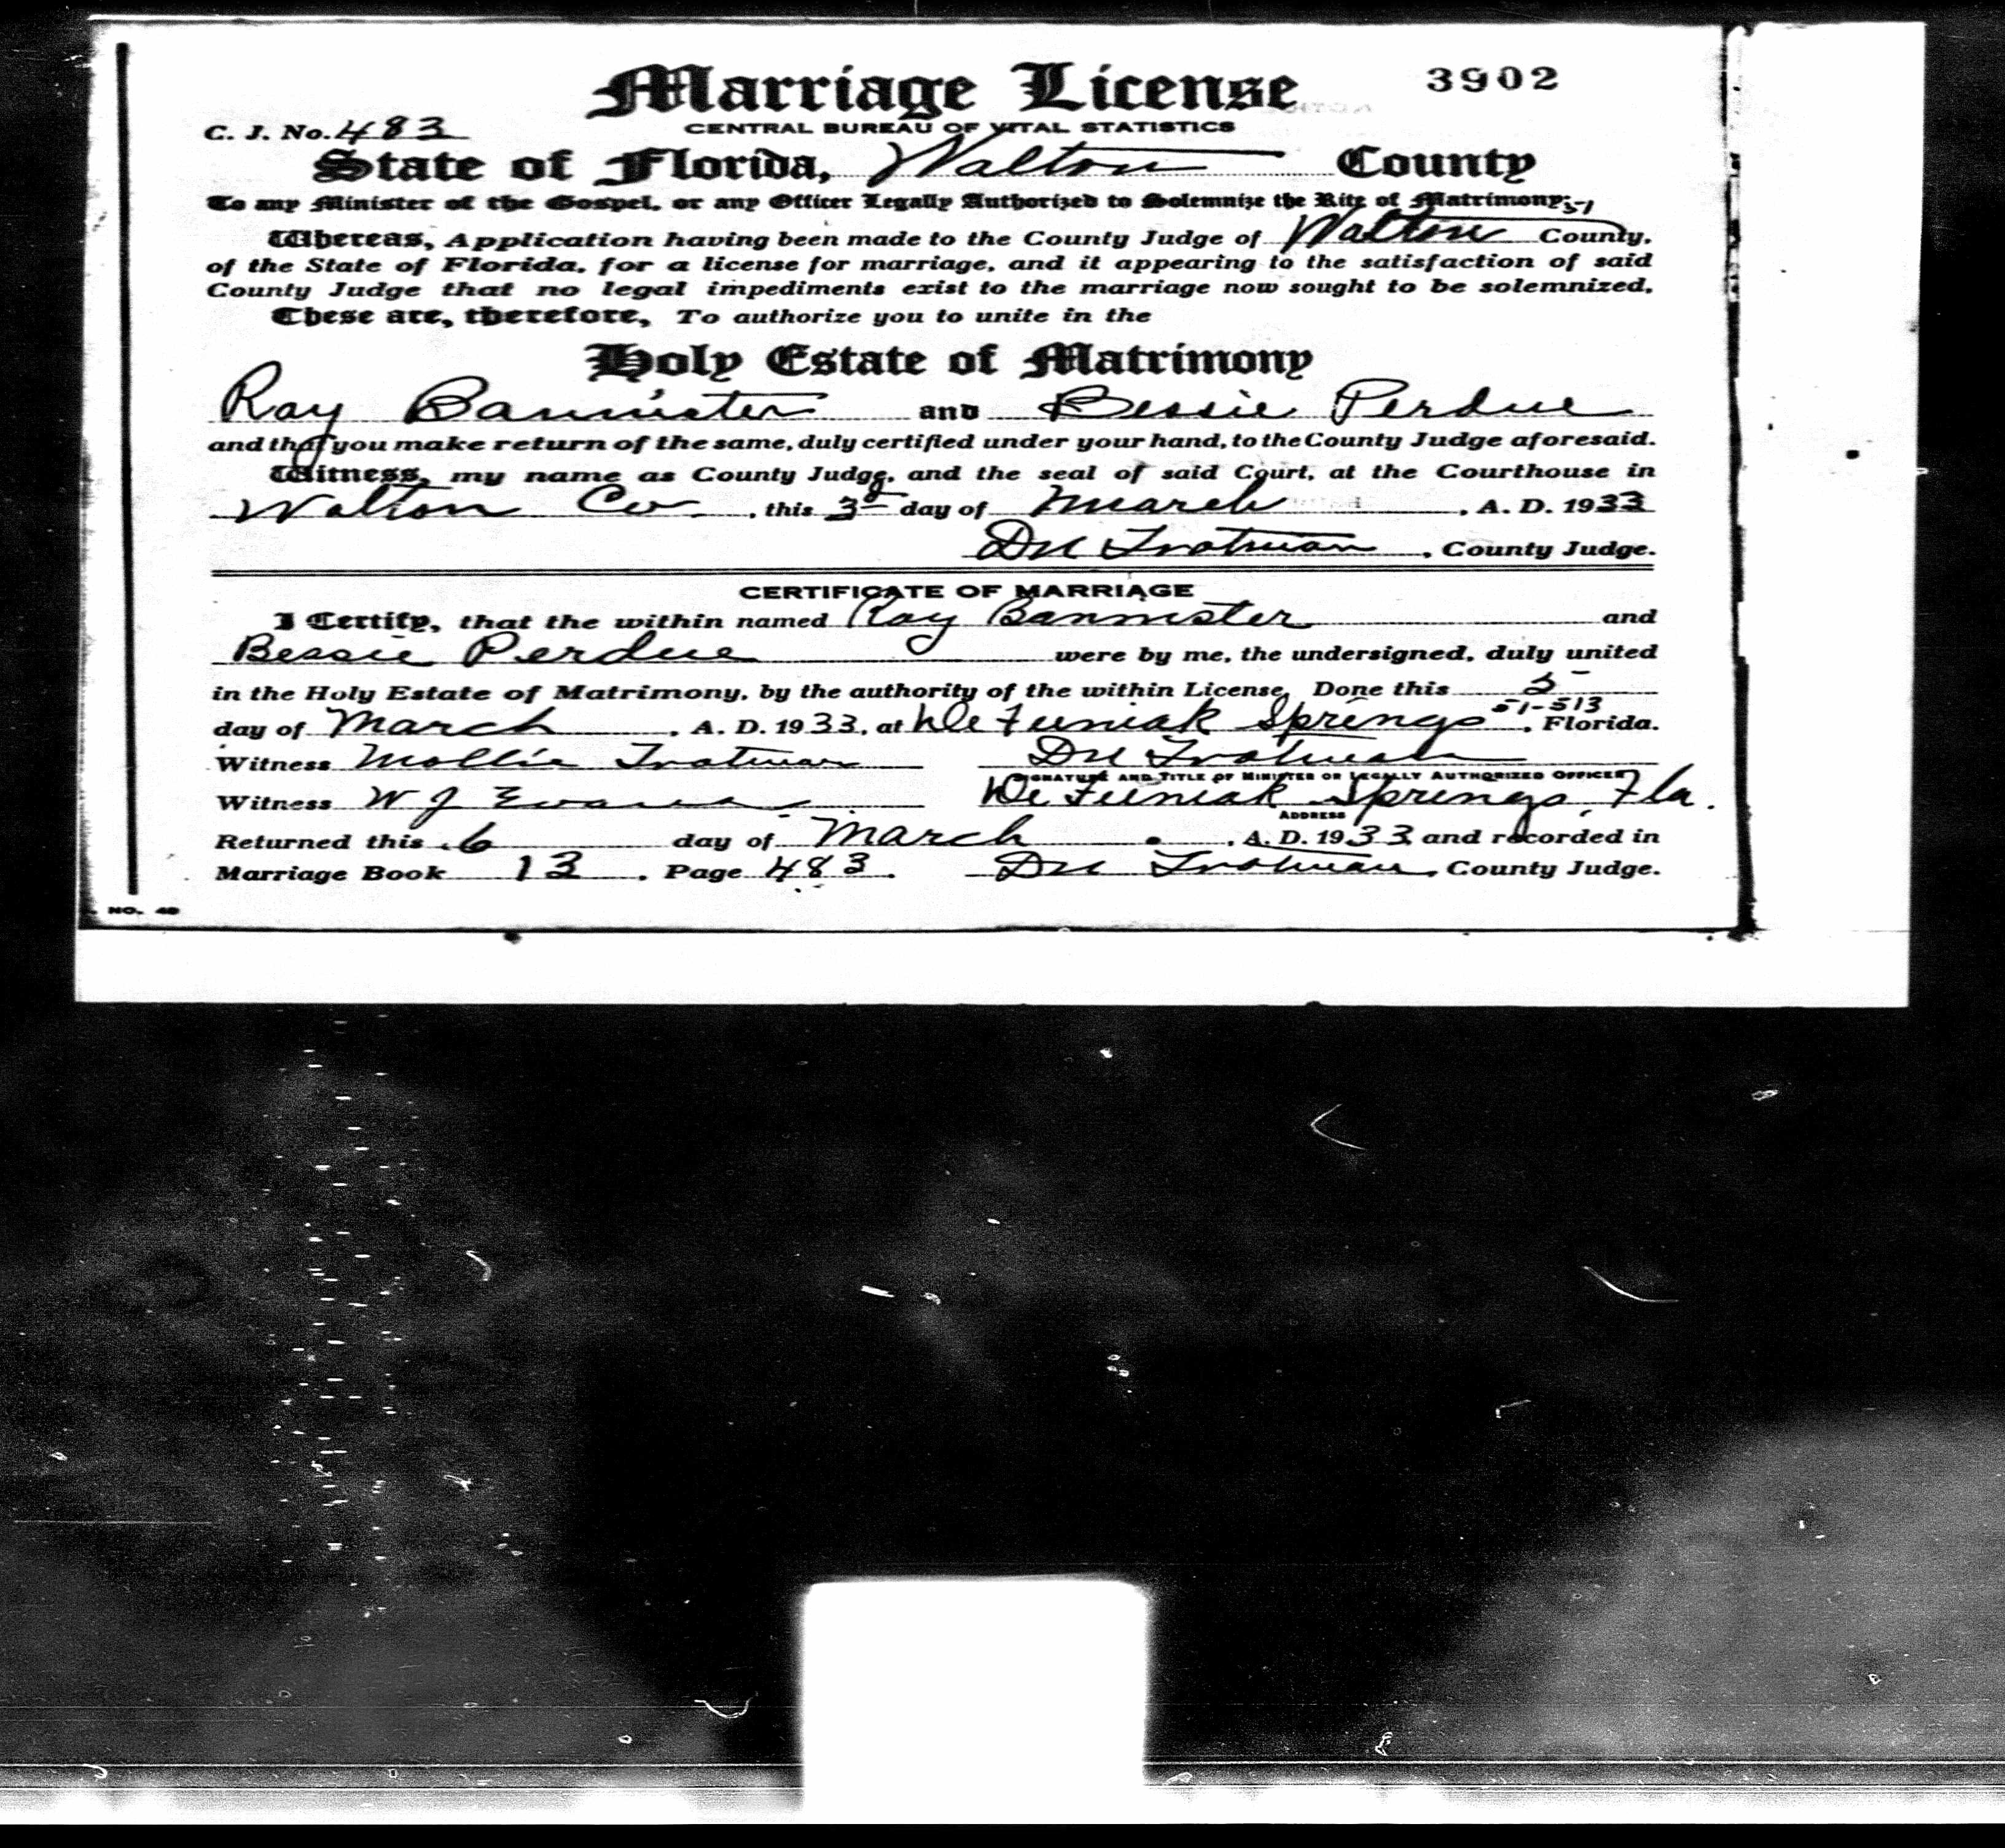 Marriage License 3902
C. J. No. 483 CENTRAL BUREAU OF VITAL STATISTICS
State of Florida, Walton County
To any Minister of the Gospel, or any Officer Legally Authorized to Solemnize the Rite of Matrimony:
Whereas, Application having been made to the County Judge of Walton County,
of the State of Florida, for a license for marriage, and it appearing to the satisfaction of said
County Judge that no legal impediments exist to the marriage now sought to be solemnized,
These are, therefore, To authorize you to unite in the
Holy Estate of Matrimony
Ray Bannister and Bessie Perdue
and that you make return of the same, duly certified under your hand, to the County Judge aforesaid.
Witness, my name as County Judge, and the seal of said Court, at the Courthouse in
Walton Co. , this 3d day of March , A. D. 1933
DN Trotman , County Judge.
CERTIFICATE OF MARRIAGE
I Certify, that the within named Ray Bannister and
Bessie Perdue were by me, the undersigned, duly united
in the Holy Estate of Matrimony, by the authority of the within License, Done this
51-513
day of March , A. D. 1933, at De Funiak Springs , Florida.
Witness Mollie Trotman DN Trotman
SIGNATURE AND TITLE OF MINISTER OR LEGALLY AUTHORIZED OFFICER
Witness W J Evans De Funiak Springs, Fla.
ADDRESS
Returned this 6 day of March , A. D. 1933 and recorded in
Marriage Book 13 , Page 483 . DN Trotman , County Judge.
NO. 40